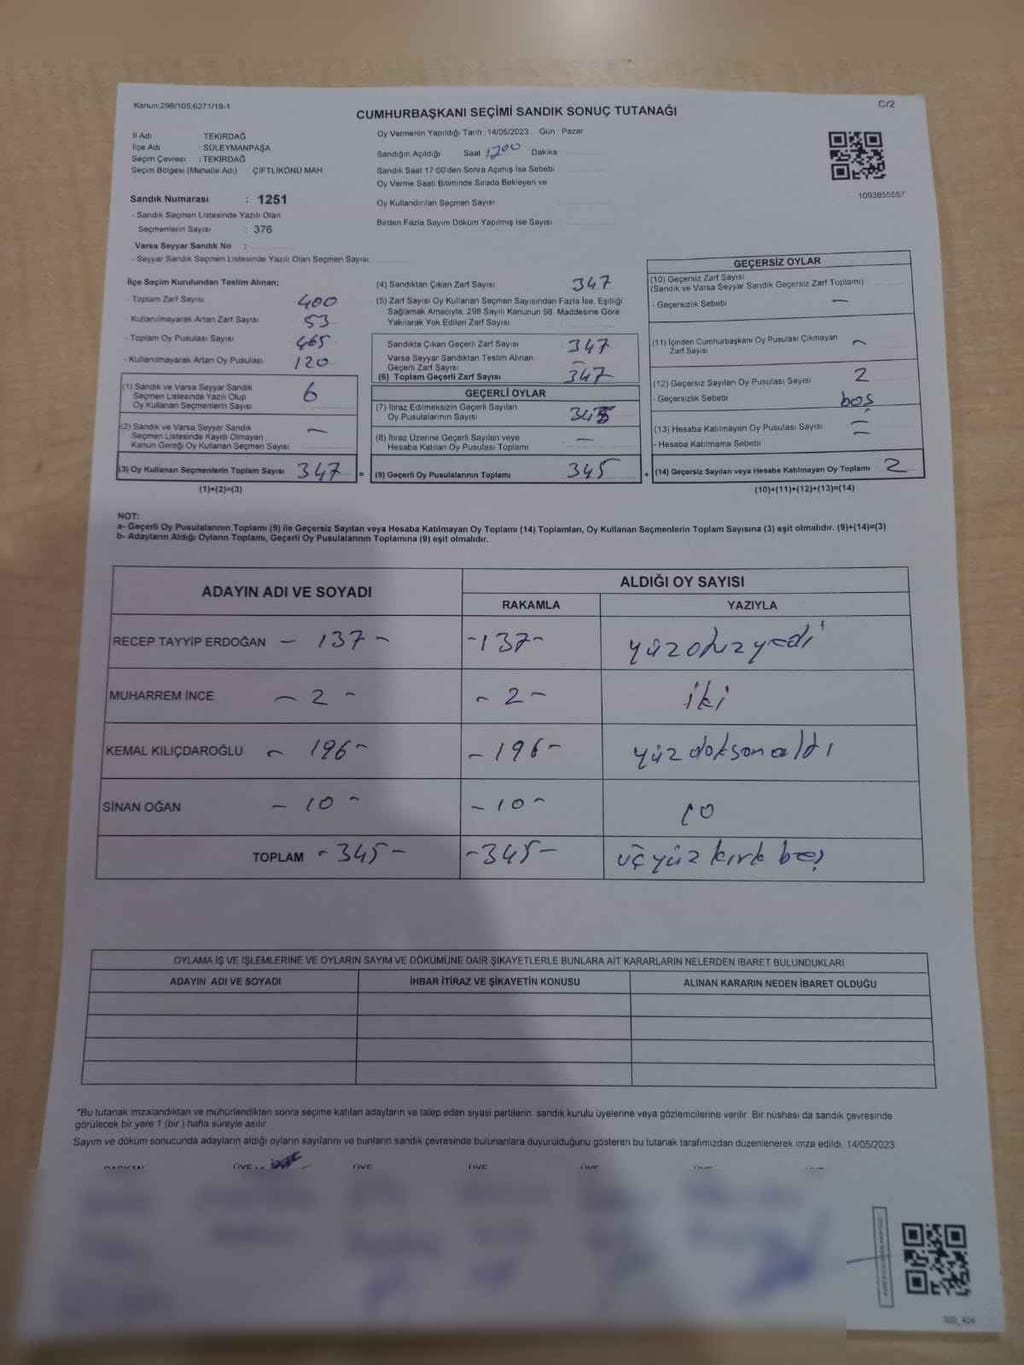 Kanun:298/105;6271/18-1
C/2
CUMHURBAŞKANI SEÇİMİ SANDIK SONUÇ TUTANAĞI
İl Adı TEKİRDAĞ
İlçe Adı : SÜLEYMANPAŞA
Seçim Çevresi : TEKİRDAĞ
Seçim Bölgesi (Mahalle Adı) ÇİFTLİKÖNÜ MAH
Sandık Numarası : 1251
- Sandık Seçmen Listesinde Yazılı Olan
Seçmenlerin Sayısı : 376
Varsa Seyyar Sandık No :
- Seyyar Sandık Seçmen Listesinde Yazılı Olan Seçmen Sayısı
Oy Vermenin Yapıldığı Tarih : 14/05/2023 Gün : Pazar
Sandığın Açıldığı Saat 1700 Dakika
Sandık Saat 17:00'den Sonra Açımış İse Sebebi
Oy Verme Saati Bitiminde Sırada Bekleyen ve
Oy Kullandırılan Seçmen Sayısı
Birden Fazla Sayım Döküm Yapılmış İse Sayısı
1093855557
İlçe Seçim Kurulundan Teslim Alınan;
- Toplam Zarf Sayısı 400
- Kullanılmayarak Artan Zarf Sayısı 53
- Toplam Oy Pusulası Sayısı 465
- Kullanılmayarak Artan Oy Pusulası 120
(1) Sandık ve Varsa Seyyar Sandık
Seçmen Listesinde Yazılı Olup
Oy Kullanan Seçmenlerin Sayısı 6
(2) Sandık ve Varsa Seyyar Sandık
Seçmen Listesinde Kayıtlı Olmayan
Kanun Gereği Oy Kullanan Seçmen Sayısı —
(3) Oy Kullanan Seçmenlerin Toplam Sayısı 347 =
(1)+(2)=(3)
(4) Sandıktan Çıkan Zarf Sayısı 347
(5) Zarf Sayısı Oy Kullanan Seçmen Sayısından Fazla İse, Eşitliği
Sağlamak Amacıyla, 298 Sayılı Kanunun 98. Maddesine Göre
Yakılarak Yok Edilen Zarf Sayısı
Sandıkta Çıkan Geçerli Zarf Sayısı 347
Varsa Seyyar Sandıktan Teslim Alınan
Geçerli Zarf Sayısı —
(6) Toplam Geçerli Zarf Sayısı 347
GEÇERLİ OYLAR
(7) İtiraz Edilmeksizin Geçerli Sayılan
Oy Pusulalarının Sayısı 345
(8) İtiraz Üzerine Geçerli Sayılan veya
Hesaba Katılan Oy Pusulaları Toplamı —
(9) Geçerli Oy Pusulalarının Toplamı 345 +
GEÇERSİZ OYLAR
(10) Geçersiz Zarf Sayısı
(Sandık ve Varsa Seyyar Sandık Geçersiz Zarf Toplamı)
- Geçersizlik Sebebi —
(11) İçinden Cumhurbaşkanı Oy Pusulası Çıkmayan
Zarf Sayısı —
(12) Geçersiz Sayılan Oy Pusulası Sayısı 2
- Geçersizlik Sebebi boş
(13) Hesaba Katılmayan Oy Pusulası Sayısı —
- Hesaba Katılmama Sebebi —
(14) Geçersiz Sayılan veya Hesaba Katılmayan Oy Toplamı 2
(10)+(11)+(12)+(13)=(14)
NOT:
a- Geçerli Oy Pusulalarının Toplamı (9) ile Geçersiz Sayılan veya Hesaba Katılmayan Oy Toplamı (14) Toplamları, Oy Kullanan Seçmenlerin Toplam Sayısına (3) eşit olmalıdır. (9)+(14)=(3)
b- Adayların Aldığı Oyların Toplamı, Geçerli Oy Pusulalarının Toplamına (9) eşit olmalıdır.
ADAYIN ADI VE SOYADI ALDIĞI OY SAYISI
RAKAMLA YAZIYLA
RECEP TAYYİP ERDOĞAN - 137 - -137- yüzotuzyedi
MUHARREM İNCE - 2 - - 2 - iki
KEMAL KILIÇDAROĞLU - 196 - - 196 - yüzdoksanaltı
SİNAN OĞAN - 10 - - 10 - 10
TOPLAM - 345 - -345- üçyüzkırkbeş
OYLAMA İŞ VE İŞLEMLERİNE VE OYLARIN SAYIM VE DÖKÜMÜNE DAİR ŞİKAYETLERLE BUNLARA AİT KARARLARIN NELERDEN İBARET BULUNDUKLARI
ADAYIN ADI VE SOYADI İHBAR İTİRAZ VE ŞİKAYETİN KONUSU ALINAN KARARIN NEDEN İBARET OLDUĞU
*Bu tutanak imzalandıktan ve mühürlendikten sonra seçime katılan adayların ve talep eden siyasi partilerin sandık kurulu üyelerine veya gözlemcilerine verilir. Bir nüshası da sandık çevresinde
görülecek bir yere 1 (bir) hafta süreyle asılır
Sayım ve döküm sonucunda adayların aldığı oyların sayılarını ve bunların sandık çevresinde bulunanlara duyurulduğunu gösteren bu tutanak tarafımızdan düzenlenerek imza edildi. 14/05/2023
BAŞKAN ÜYE ÜYE ÜYE ÜYE ÜYE